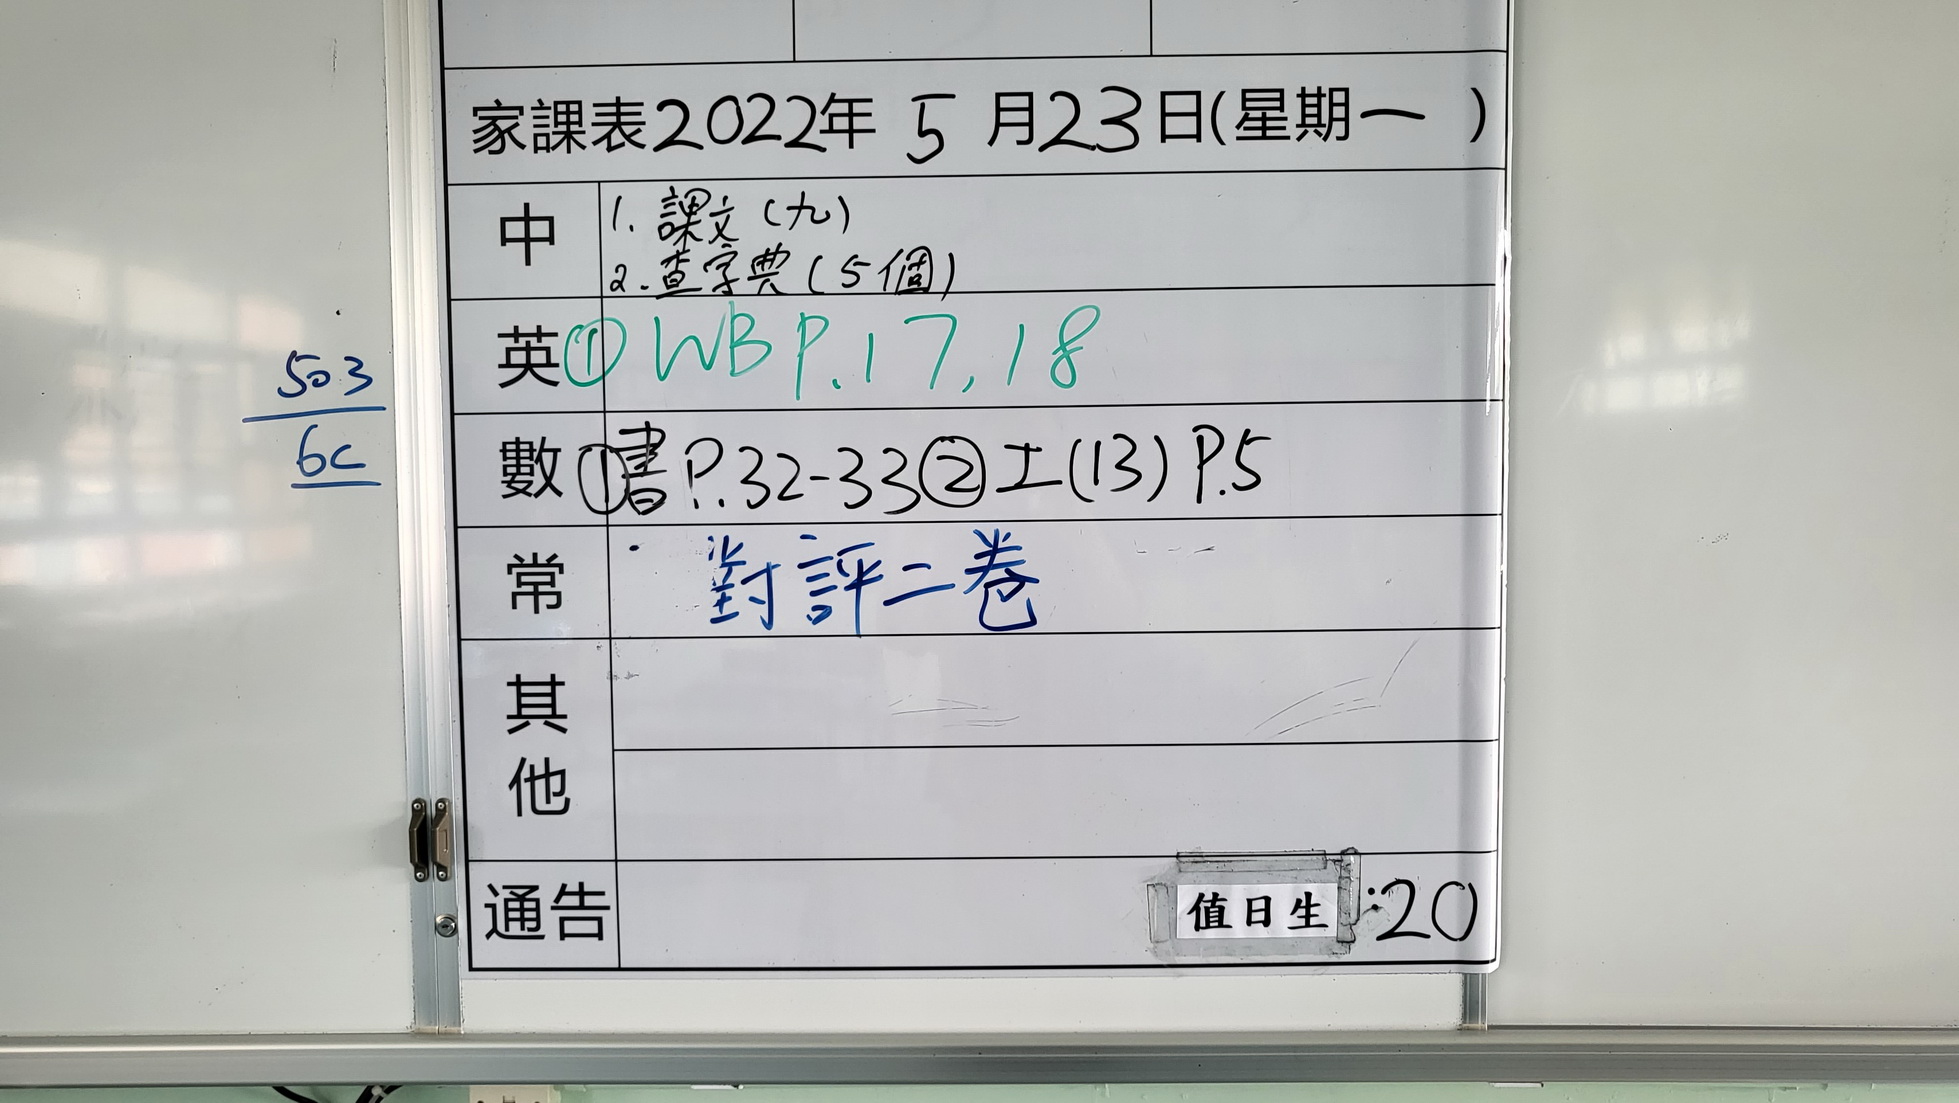 家課表2022年 5 月23日(星期一 )
中
1. 課文(九)
2. 查字典(5個)
英 ① WB P.17,18
503
6C
數 ①書P.32-33②工(13) P.5
常 對評二卷
其他
通告
值日生:20